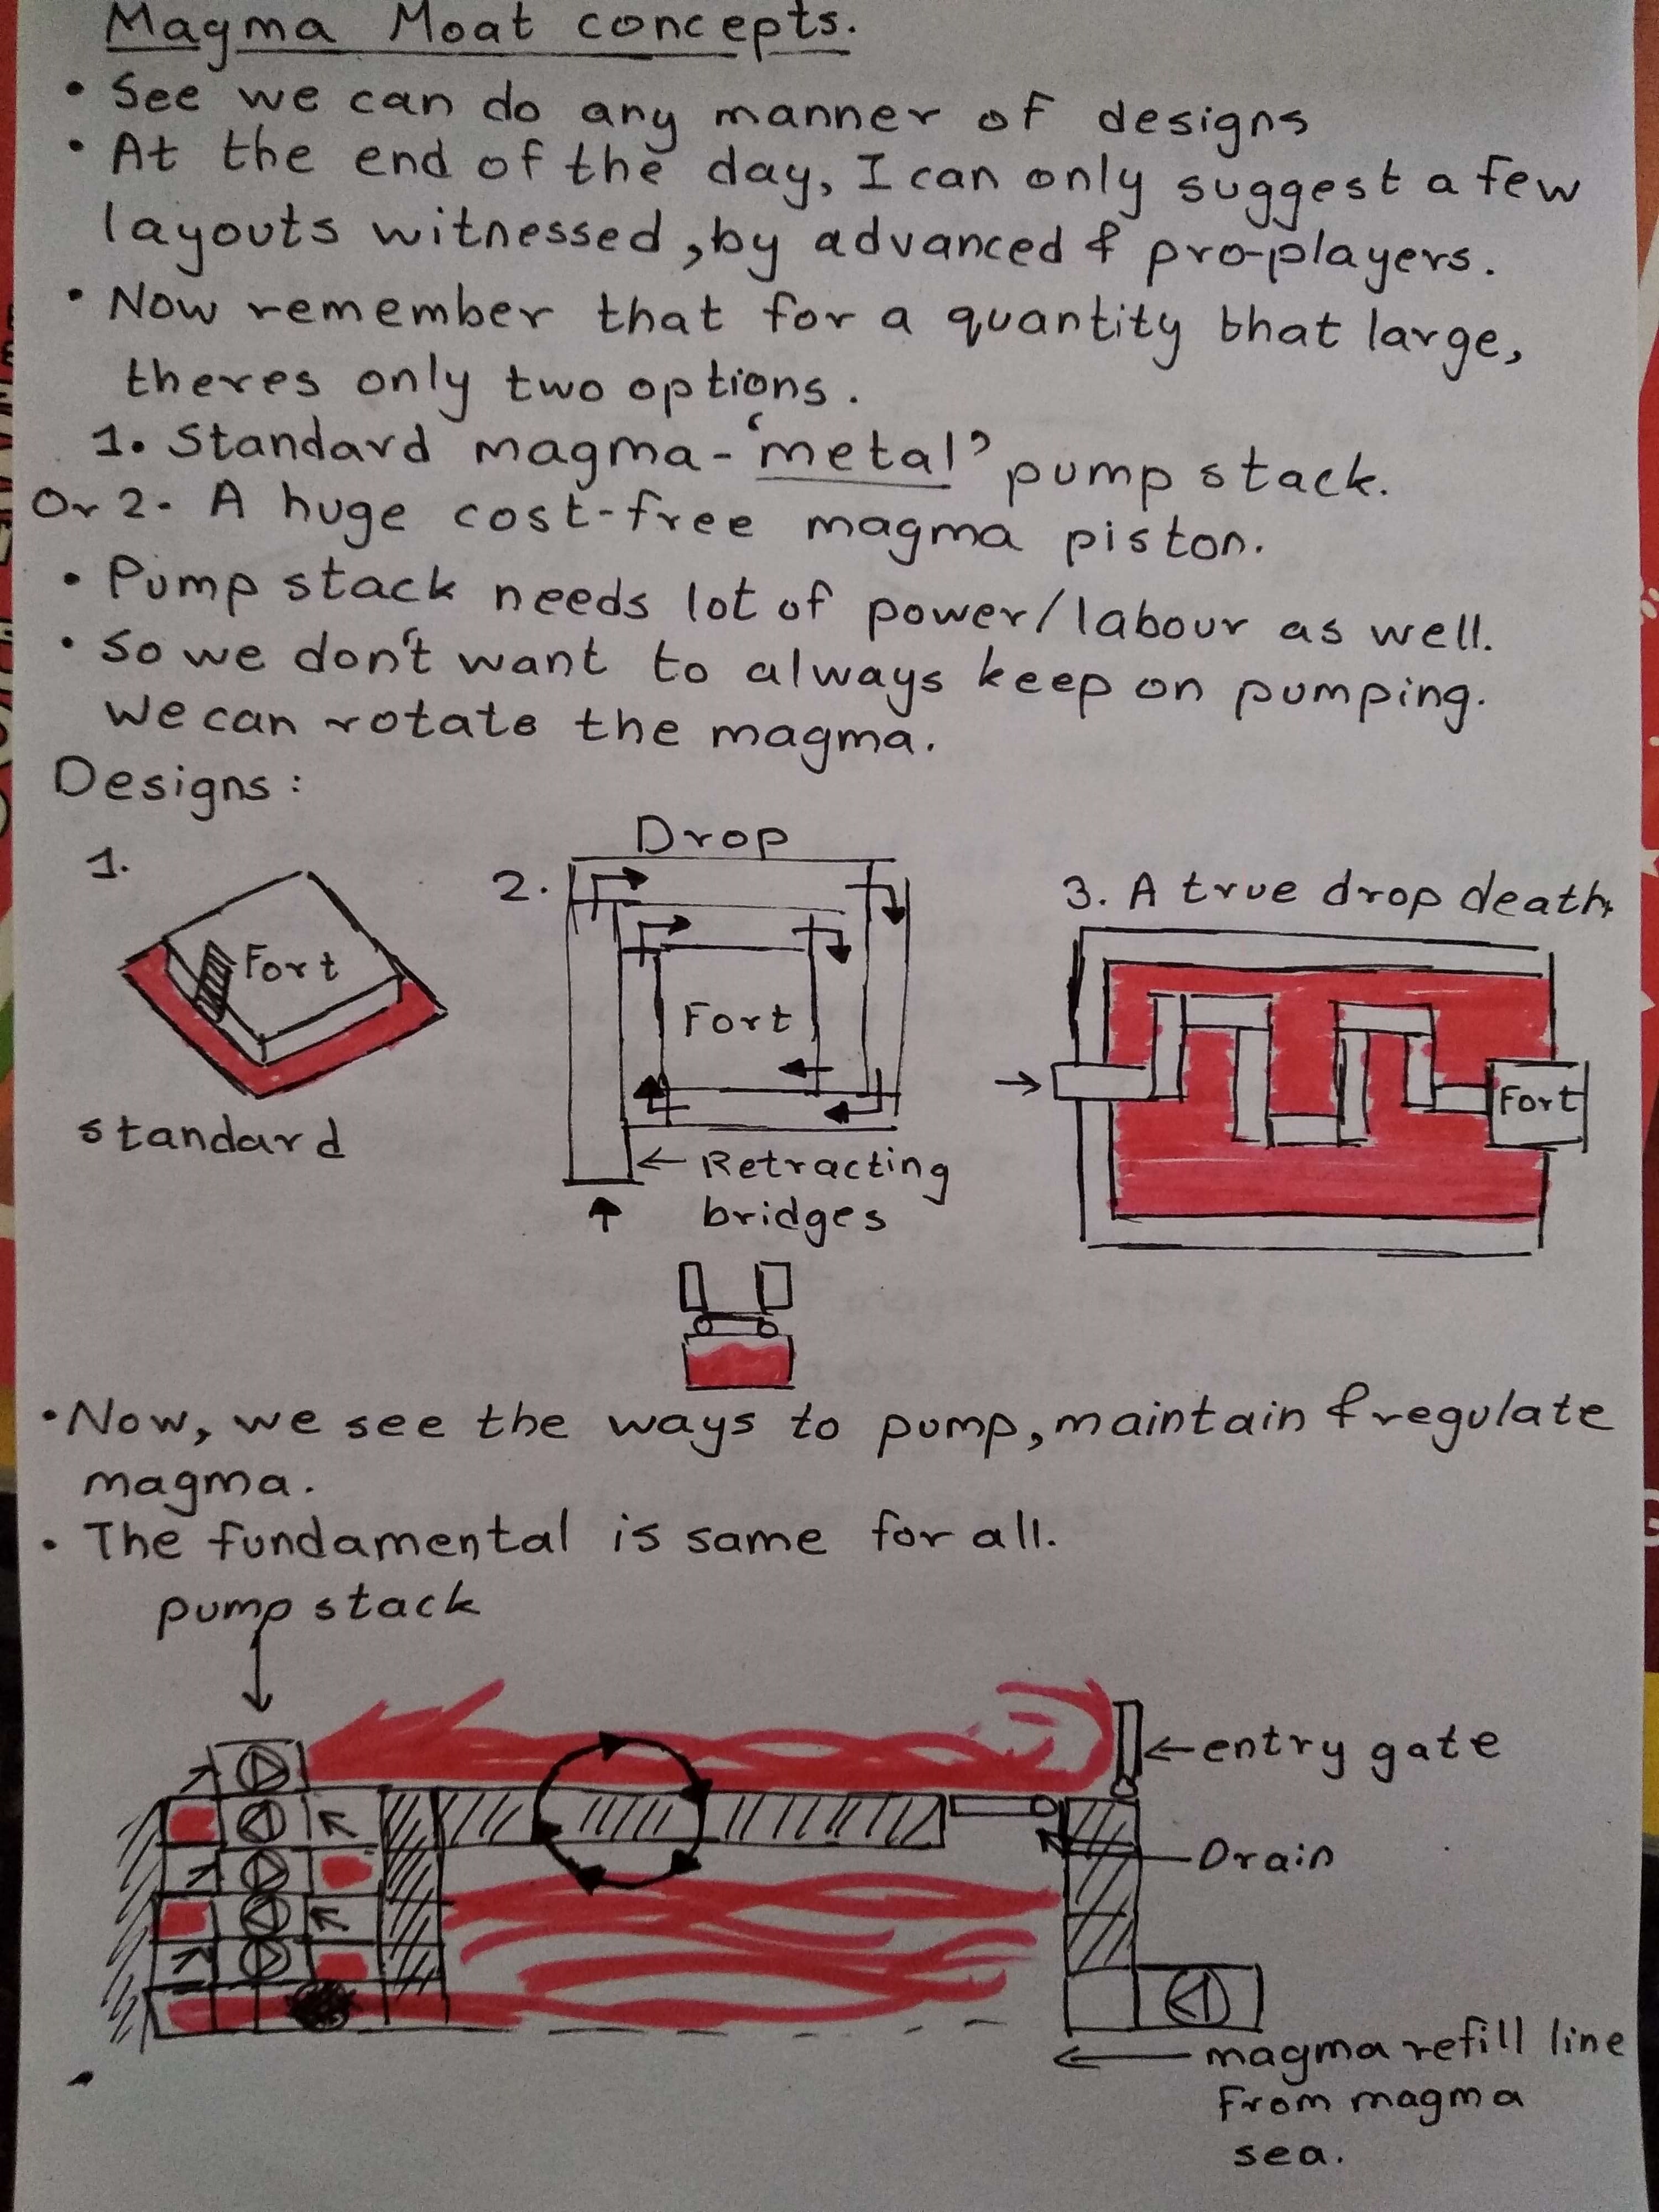 Magma Moat concepts.
• See we can do any manner of designs
• At the end of the day, I can only suggest a few
layouts witnessed, by advanced & pro-players.
• Now remember that for a quantity that large,
theres only two options.
1. Standard magma-'metal' pump stack.
Or 2. A huge cost-free magma piston.
• Pump stack needs lot of power/labour as well.
• So we don't want to always keep on pumping.
We can rotate the magma.
Designs:
1.
Fort
standard
2.
Drop
Fort
← Retracting
bridges
3. A true drop death
Fort
• Now, we see the ways to pump, maintain & regulate
magma.
• The fundamental is same for all.
pump stack
entry gate
Drain
magma refill line
From magma
sea.